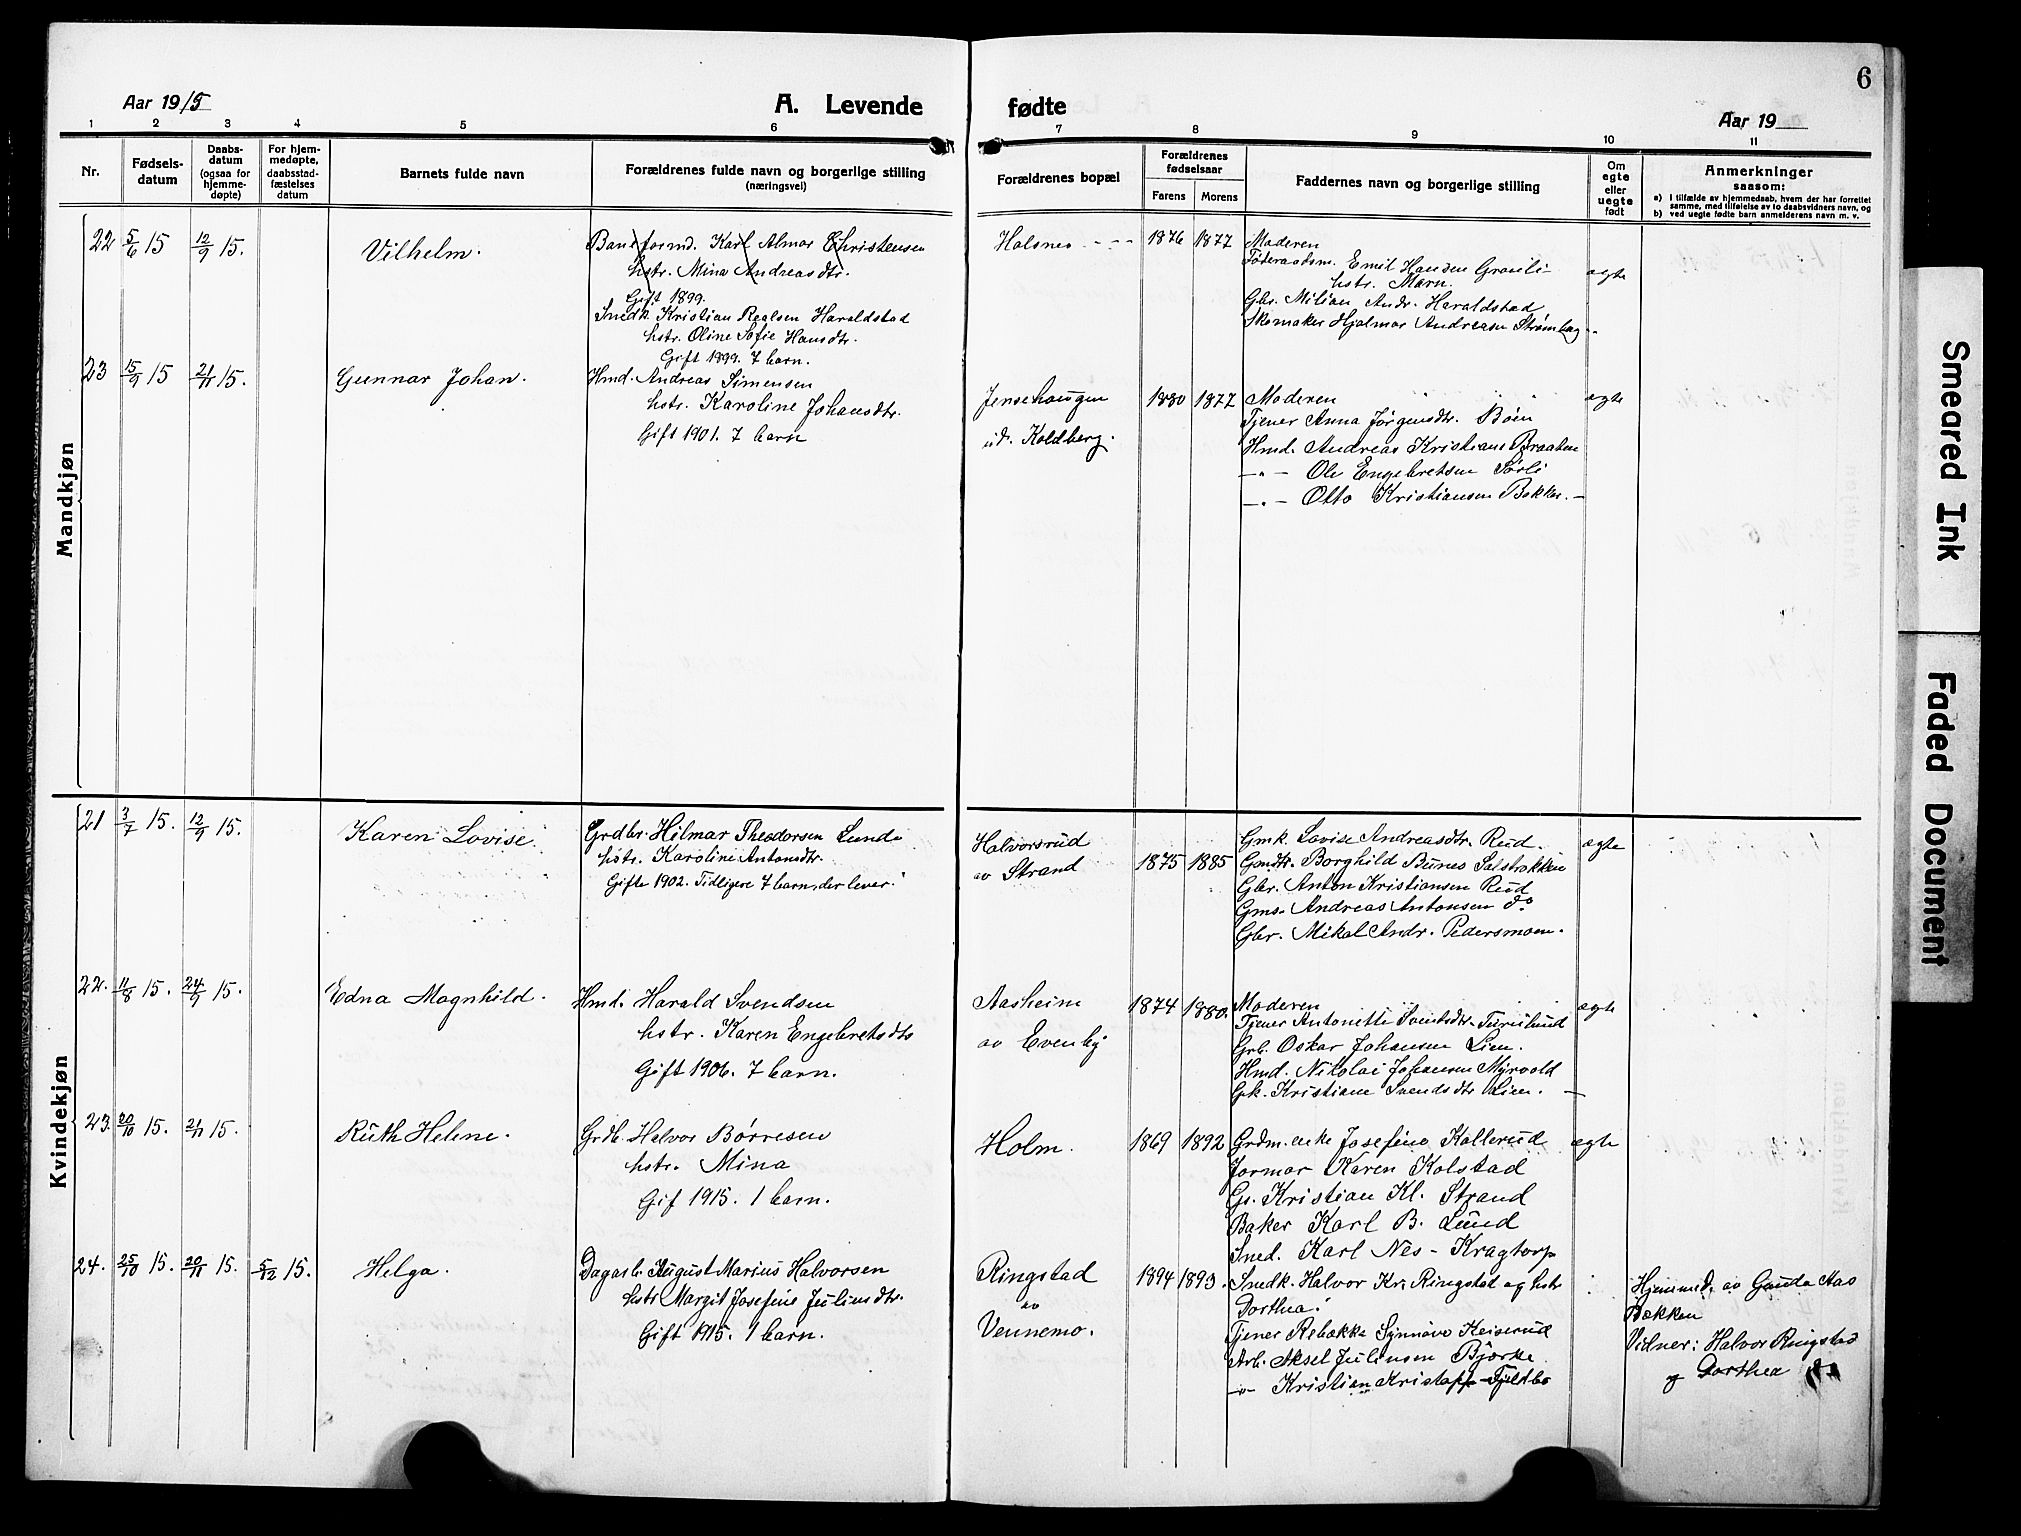 6
Aar 1915
A. Levende
fødte
Aar 19
1 2 3 4 5 6 7 8 9 10 11
Nr.
Fødsels-
datum
Daabs-
datum
(ogsaa for
hjemme-
døpte)
For hjem-
medøpte,
daabsstad-
fæstelses
datum
Barnets fulde navn
Forældrenes fulde navn og borgerlige stilling
(næringsvei)
Forældrenes bopæl
Forældrenes
fødselsaar
Farens Morens
Faddernes navn og borgerlige stilling
Om
egte
eller
uegte
født
Anmerkninger
saasom:
a) i tilfælde av hjemmedaab, hvem der har forrettet
samme, med tilføielse av to daabsvidners navn, og
b) ved uegte fødte barn anmelderens navn m. v.
Mandkjøn
22 5/6 15 12/9 15.
Vilhelm.
Baneformd. Karl Almar Christensen
hstr. Mina Andreasdtr.
Gift 1899.
Snedk. Kristian Realsen Haraldstad
hstr. Oline Sofie Hansdtr.
Gift 1899. 7 barn.
Holsnes - - -
1876 1877
Moderen
Føderaadsm. Emil Hansen Grauli-
hstr. Marn.
Gbr. Milian Andr. Haraldstad
Skomaker Hjalmar Andreasen Strømhag -
ægte
23 15/9 15 21/11 15.
Gunnar Johan.
Hmd. Andreas Simensen
hstr. Karoline Johansdtr.
Gift 1901. 7 barn
Jensehaugen
u. Koldberg.
1880 1877
Moderen
Tjener Anna Jørgensdtr. Bøen
Hmd. Andreas Kristians. Braaten
-"- Ole Engebretsen Sørli
-"- Otto Kristiansen Bakke. -
ægte
Kvindekjøn
21 3/7 15. 12/9 15.
Karen Lovise.
Grdbr. Hilmar Theodorsen Lunde
hstr. Karoline Antonsdtr.
Gifte 1902. Tidligere 7 barn, der lever.
Halvorsrud
av Strand
1875 1885
Gmk. Lovise Andreasdtr. Rud.
Gmdtr. Borghild Bunes Salstokken
Gbr. Anton Kristiansen Rud
Gms. Andreas Antonsen do
Gbr. Mikal Andr. Pedersmoen.
ægte
22. 11/8 15. 24/9 15.
Edna Magnhild.
Hmd. Harald Svendsen
hstr. Karen Engebretsdtr
Gift 1906. 7 barn.
Aasheim
av Evenby
1874 1880.
Moderen
Tjener Antonette Svendsdtr.
Grb. Oskar Johansen Lien.
Hmd. Nikolai Johansen Myrvold
Gk. Kristiane Svendsdtr Lien. -
ægte
23. 20/10 15. 21/11 15.
Ruth Helene.
Grdb. Halvor Børresen
hstr. Mina
Gif 1915. 1 barn.
Holm.
1869 1892
Grdm. enke Josefine Kallerud
Jormor Karen Kolstad
Gs. Kristian Kl. Strand
Baker Karl B. Lund
Sned. Karl Nes - Kragtorp
ægte
24. 25/10 15. 20/11 15. 5/12 15.
Helga.
Dagarb. August Marius Halvorsen
hstr Margit Josefine Julinsdtr.
Gift 1915. 1 barn.
Ringstad
av
Vennemo.
1894 1893.
Snedk. Halvor Kr. Ringstad og hstr
Dorthea.
Tjener Rebekka Synnøve Keiserud
Arb. Aksel Julinsen Bjørke
-"- Kristian Kristoff. Fjeldbo
Hjemmed. av Gunda Aas
Bækken
Vidner: Halvor Ringstad
og Dorthea
Smeared Ink
Faded Document